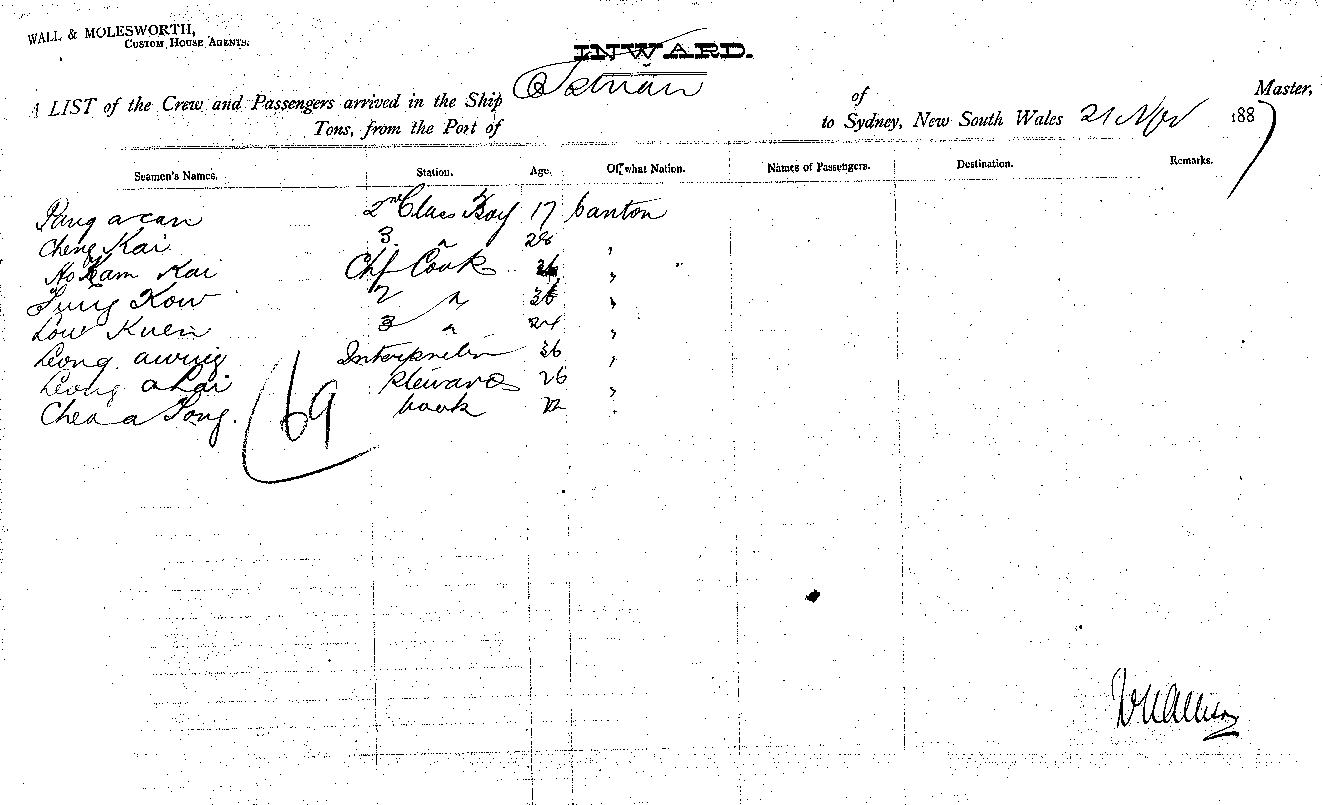 WALL & MOLESWORTH,
CUSTOM HOUSE AGENTS.
INWARD.
A LIST of the Crew and Passengers arrived in the Ship of Master,
Tons, from the Port of to Sydney, New South Wales 21 Nov 1887
Seamen's Names. Station. Age. Of what Nation. Names of Passengers. Destination. Remarks.
2nd Class Boy 17 Canton
Cheng Kai 3 " 28 "
Ho Kam Kai Chf Cook 36 "
Fung Kow 2 " 36 "
Low Kuen 3 " 24 "
Leong Interpreter 36 "
Leong a Lai Steward 26 "
Chea a Cook
69